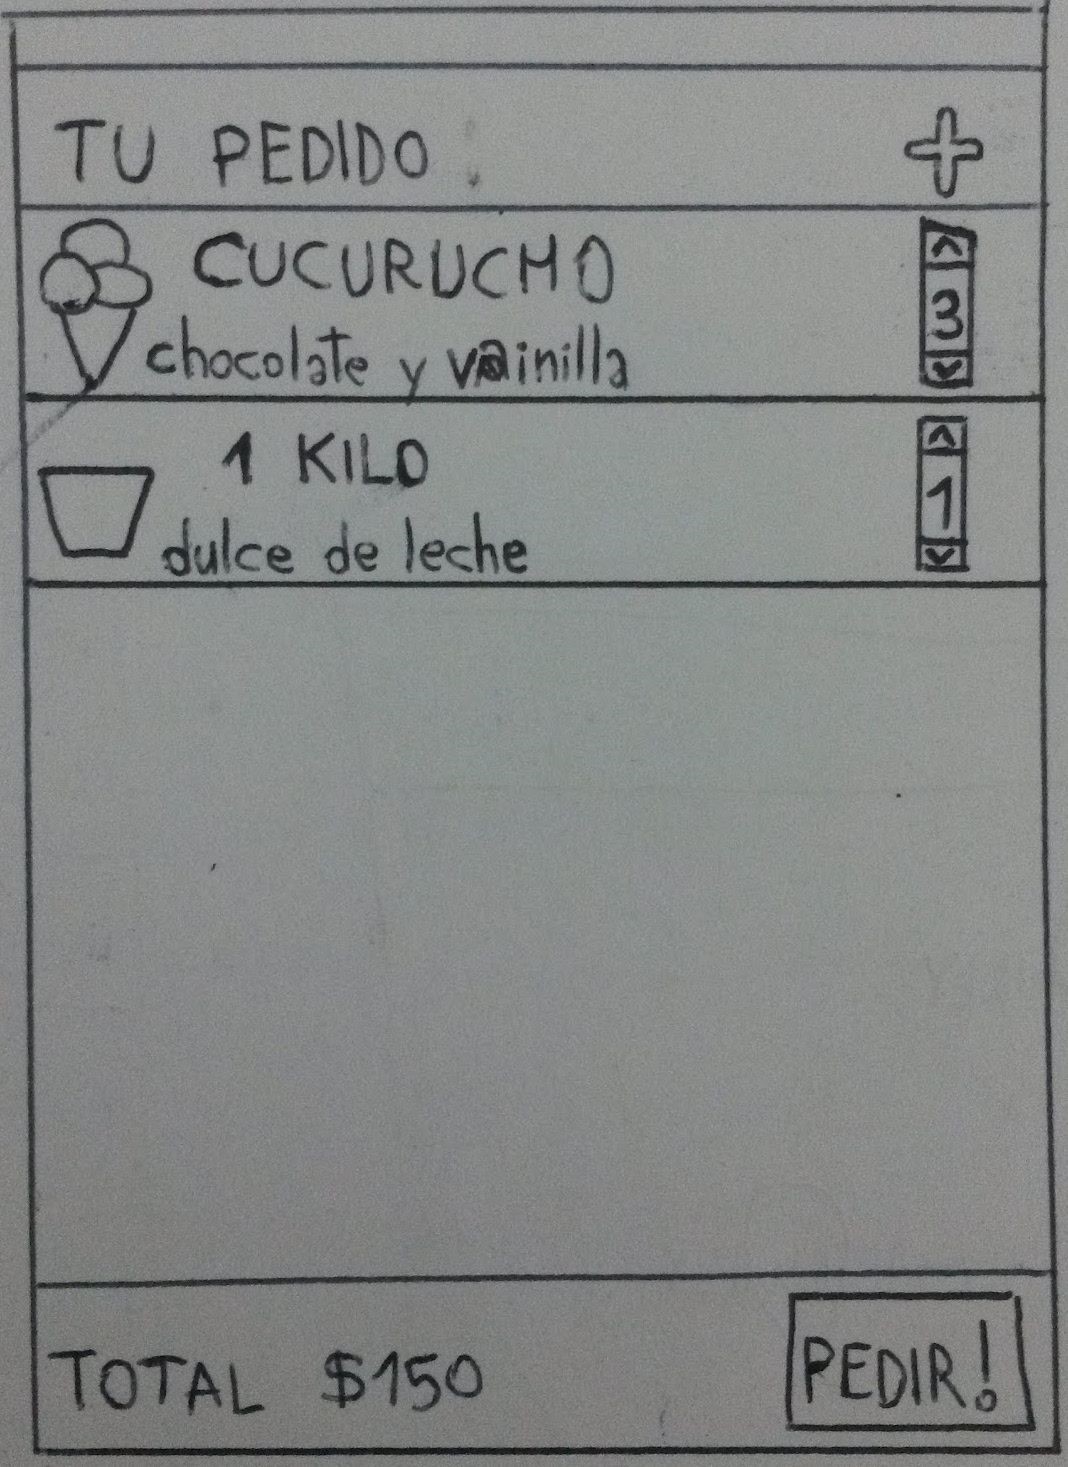 TU PEDIDO
CUCURUCHO
chocolate y vainilla
3
1 KILO
dulce de leche
1
TOTAL $150
PEDIR!